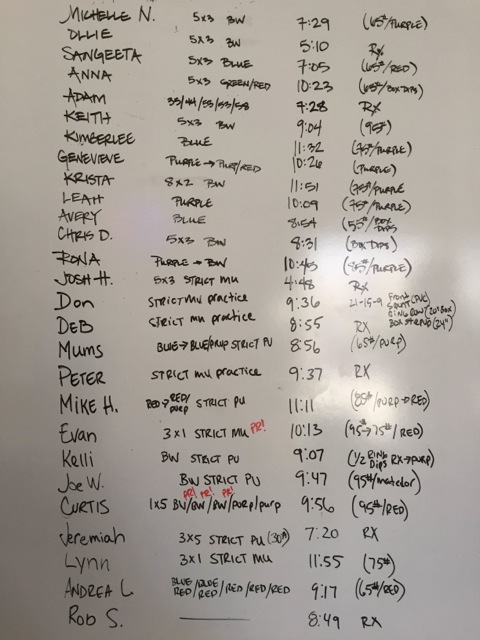 MICHELLE N. 5x3 BW 7:29 (65#/PURPLE)
OLLIE 5x3 BW 5:10 RX
SANGEETA 5x3 BLUE 7:05 (65#/RED)
ANNA 5x3 GREEN/RED 10:23 (65#/BOX DIPS)
ADAM 35/44/53/53/58 7:28 RX
KEITH 5x3 BW 9:04 (95#)
KIMBERLEE BLUE 11:32 (75#/PURPLE)
GENEVIEVE PURPLE → PURP/RED 10:26 (PURPLE)
KRISTA 8x2 BW 11:51 (75#/PURPLE
LEAH PURPLE 10:09 (75#/PURPLE)
AVERY BLUE 8:54 (55#/BOX DIPS)
CHRIS D. 5x3 BW 8:31 (BOX DIPS)
RONA PURPLE → BW 10:43 (85#/PURPLE)
JOSH H. 5x3 STRICT MU 4:48 RX
Don STRICT MU practice 9:36 21-15-9 Front Squat (PVC) RING ROW/20" BOX BOX STEP UP (24")
DEB STRICT mu practice 8:55 RX
Mums BLUE → BLUE/PURP STRICT PU 8:56 (65#/PURP)
PETER STRICT mu practice 9:37 RX
MIKE H. RED → RED/PURP STRICT PU 11:11 (85#/PURP → RED)
Evan 3x1 STRICT MU PR! 10:13 (95 → 75#/RED)
Kelli BW STRICT PU 9:07 (1/2 RING Dips RX → PURP)
Joe W. BW STRICT PU 9:47 (95#/matador)
PR! PR! PR!
CURTIS 1x5 BW/BW/BW/PURP/purp 9:56 (95#/RED)
Jeremiah 3x5 STRICT PU (30#) 7:20 RX
Lynn 3x1 STRICT MU 11:55 (75#)
ANDREA L BLUE/RED/BLUE/RED/RED/RED/RED 9:17 (65#/RED)
Rob S. 8:49 RX